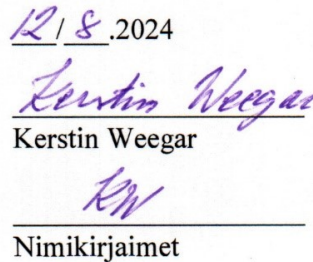 12/8.2024
Kerstin Weegar
Kerstin Weegar
KW
Nimikirjaimet